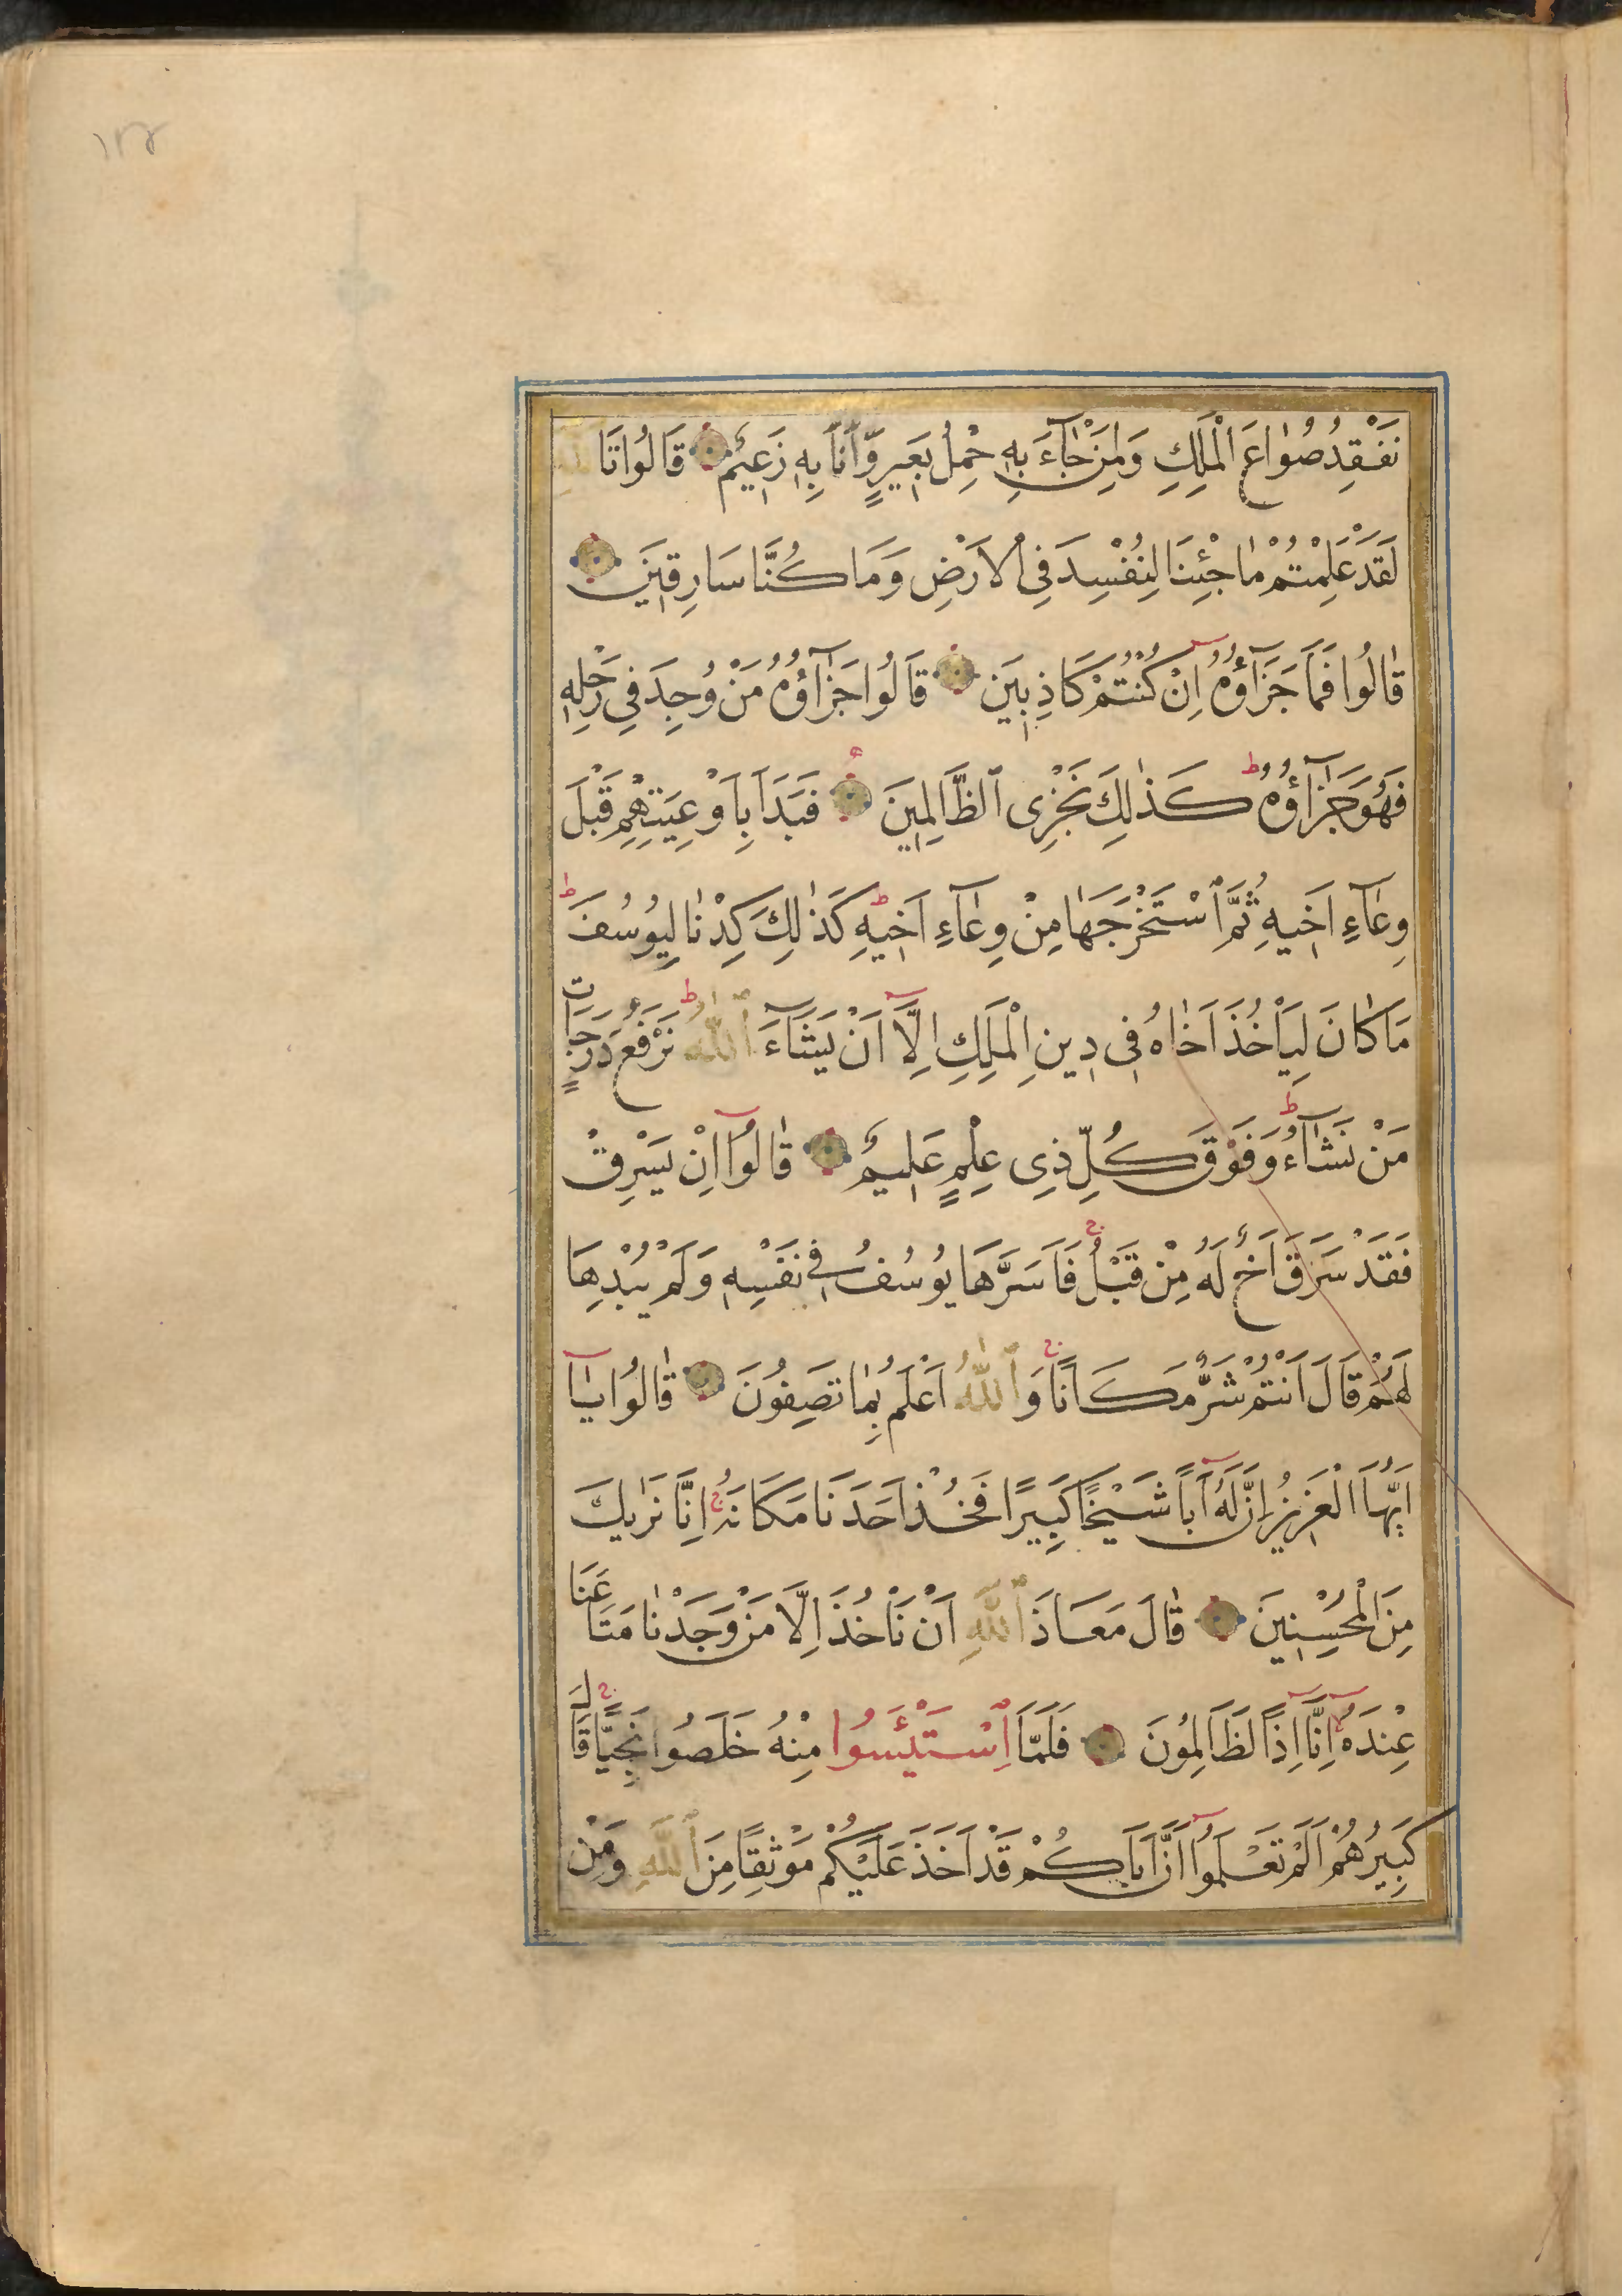 ١٢٤
نَفْقِدُ صُوَاعَ الْمَلِكِ وَلِمَنْ جَآءَ بِهِ حِمْلُ بَعِيرٍ وَّاَنَا۬ بِهِ زَعِيمٌ قَالُوا تَاللّٰهِ
لَقَدْ عَلِمْتُمْ مَا جِئْنَا لِنُفْسِدَ فِى الْاَرْضِ وَمَا كُنَّا سَارِقِينَ
قَالُوا فَمَا جَزَآؤُهُ اِنْ كُنْتُمْ كَاذِبِينَ قَالُوا جَزَآؤُهُ مَنْ وُجِدَ فِى رَحْلِهِ
فَهُوَ جَزَآؤُهُ ط كَذٰلِكَ نَجْزِى الظَّالِمِينَ فَبَدَاَ بِاَوْعِيَتِهِمْ قَبْلَ
وِعَآءِ اَخِيهِ ثُمَّ اسْتَخْرَجَهَا مِنْ وِعَآءِ اَخِيهِ ط كَذٰلِكَ كِدْنَا لِيُوسُفَ ط
مَا كَانَ لِيَاْخُذَ اَخَاهُ فِى دِينِ الْمَلِكِ اِلَّآ اَنْ يَشَآءَ اللّٰهُ ط نَرْفَعُ دَرَجَاتٍ
مَنْ نَشَآءُ ط وَفَوْقَ كُلِّ ذِى عِلْمٍ عَلِيمٌ قَالُوآ اِنْ يَسْرِقْ
فَقَدْ سَرَقَ اَخٌ لَهُ مِنْ قَبْلُ ج فَاَسَرَّهَا يُوسُفُ فِى نَفْسِهِ وَلَمْ يُبْدِهَا
لَهُمْ قَالَ اَنْتُمْ شَرٌّ مَكَانًا ج وَاللّٰهُ اَعْلَمُ بِمَا تَصِفُونَ قَالُوا يَآ
اَيُّهَا الْعَزِيزُ اِنَّ لَهُ اَبًا شَيْخًا كَبِيرًا فَخُذْ اَحَدَنَا مَكَانَهُ ج اِنَّا نَرٰيكَ
مِنَ الْمُحْسِنِينَ قَالَ مَعَاذَ اللّٰهِ اَنْ نَاْخُذَ اِلَّا مَنْ وَجَدْنَا مَتَاعَنَا
عِنْدَهُ اِنَّآ اِذًا لَظَالِمُونَ فَلَمَّا اسْتَيْئَسُوا مِنْهُ خَلَصُوا نَجِيًّا ج قَالَ
كَبِيرُهُمْ اَلَمْ تَعْلَمُوآ اَنَّ اَبَاكُمْ قَدْ اَخَذَ عَلَيْكُمْ مَوْثِقًا مِنَ اللّٰهِ وَمِنْ